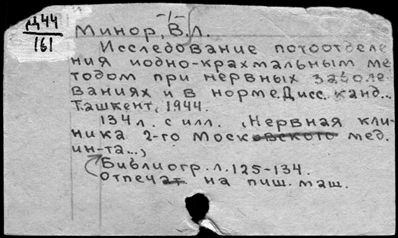 Д44
161
-1-
Минор, В.Л.
Исследование потоотделе
ния иодно-крахмальным ме
тодом при нервных заболе
ваниях и в норме. Дисс. канд...
Ташкент, 1944.
134 л. с илл. (Нервная кли-
ника 2-го Московского мед.
ин-та...)
Библиогр. л. 125-134.
Отпечат на пиш. маш.